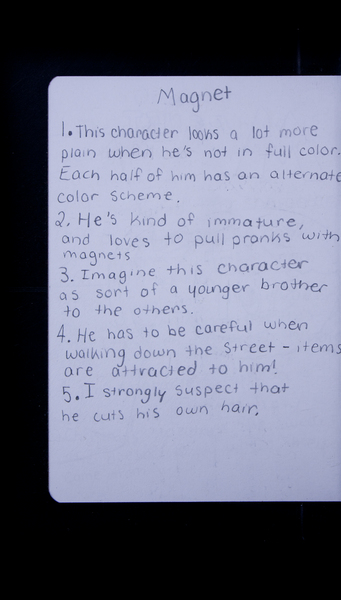 Magnet
1. This character looks a lot more
plain when he's not in full color.
Each half of him has an alternate
color scheme.
2. He's kind of immature,
and loves to pull pranks with
magnets
3. Imagine this character
as sort of a younger brother
to the others.
4. He has to be careful when
walking down the street - items
are attracted to him!
5. I strongly suspect that
he cuts his own hair.